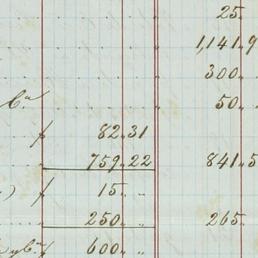 25 "
1,141 " 9
300 "
50 "
82 " 31
759 " 22 841 " 5
) 15 " "
250 " " 265 "
600 " "